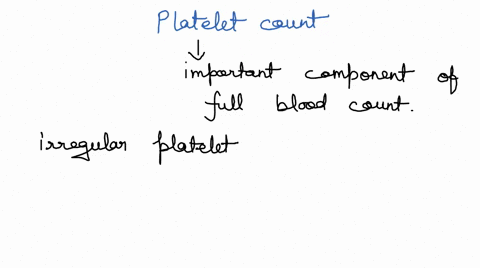 Platelet count
important component of
full blood count.
irregular platelet